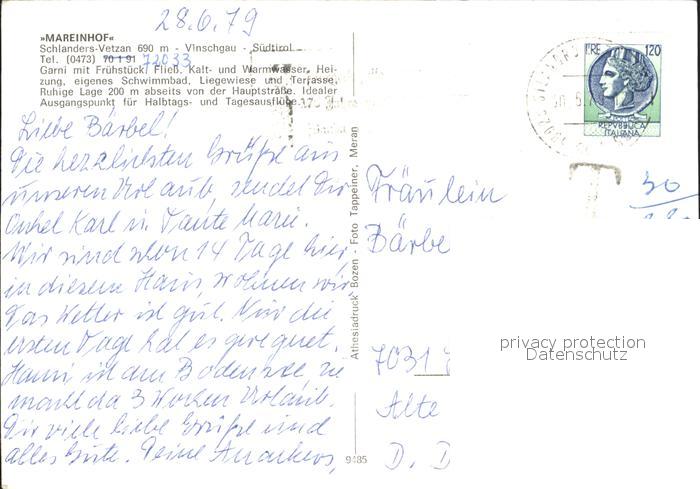 28.6.79
»MAREINHOF«
Schlanders-Vetzan 690 m - Vinschgau - Südtirol
Tel. (0473) 70191 72033
Garni mit Frühstück. Fließ. Kalt- und Warmwasser, Hei-
zung, eigenes Schwimmbad, Liegewiese und Terrasse.
Ruhige Lage 200 m abseits von der Hauptstraße. Idealer
Ausgangspunkt für Halbtags- und Tagesausflüge.
Liebe Bärbel!
Die herzlichsten Grüße aus
unseren Urlaub, sendet Dir
Onkel Karl u. Tante Marie.
Wir sind schon 14 Tage hier,
in diesem Haus, wohnen wir.
Das Wetter ist gut. Nur die
ersten Tage hat es geregnet.
Hanni ist am Bodensee sie
macht da 3 Wochen Urlaub.
Dir viele liebe Grüße und
alles Gute. Deine
Athesiadruck Bozen - Foto Tappeiner, Meran
9485
IRE 120
REPVBBLICA
ITALIANA
T
30
Fräulein
Bärbe
7031
Alte
D. D
privacy protection
Datenschutz